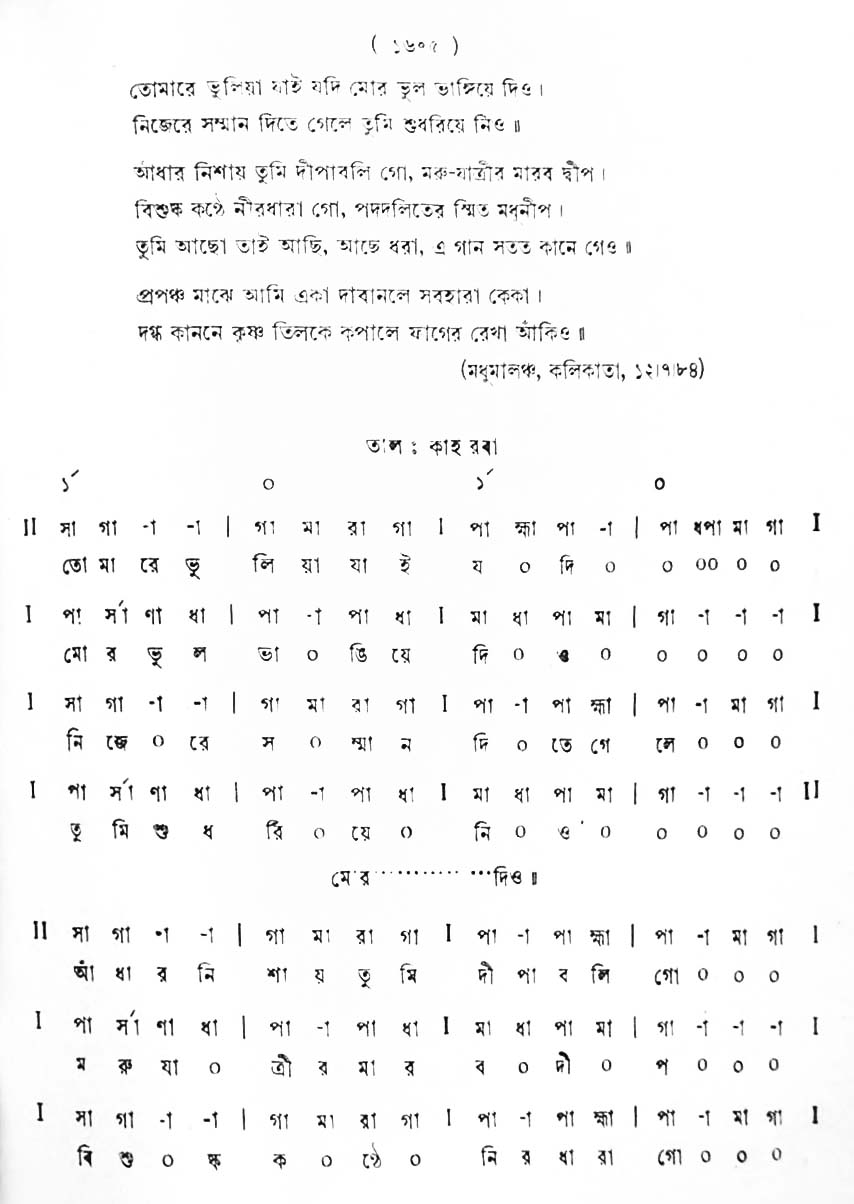 ( ১৬০৫ )
তোমারে ভুলিয়া যাই যদি মোর ভুল ভাঙ্গিয়ে দিও ।
নিজেরে সম্মান দিতে গেলে তুমি শুধরিয়ে নিও ॥
আঁধার নিশায় তুমি দীপাবলি গো, মরু-যাত্রীর মারব দ্বীপ ।
বিশুষ্ক কণ্ঠে নীরধারা গো, পদদলিতের স্মিত মধুনীপ ।
তুমি আছো তাই আছি, আছে ধরা, এ গান সতত কানে গেও ॥
প্রপঞ্চ মাঝে আমি একা দাবানলে সবহারা কেকা ।
দগ্ধ কাননে কৃষ্ণ তিলকে কপালে ফাগের রেখা আঁকিও ॥
(মধুমালঞ্চ, কলিকাতা, ১২।৭।৮৪)
তাল : কাহরবা
১´ ০ ১´ ০
II সা গা -া -া | গা মা রা গা I পা হ্মা পা -া | পা ধপা মা গা I
তো মা রে ভু লি য়া যা ই য ০ দি ০ ০ ০০ ০ ০
I পা র্সা ণা ধা | পা -া পা ধা I মা ধা পা মা | গা -া -া -া I
মো র ভু ল ভা ০ ঙি য়ে দি ০ ও ০ ০ ০ ০ ০
I সা গা -া -া | গা মা রা গা I পা -া পা হ্মা | পা -া মা গা I
নি জে ০ রে স ০ ম্মা ন দি ০ তে গে লে ০ ০ ০
I পা র্সা ণা ধা | পা -া পা ধা I মা ধা পা মা | গা -া -া -া II
তু মি শু ধ রি ০ য়ে ০ নি ০ ও ০ ০ ০ ০ ০
মোর··············দিও ॥
II সা গা -া -া | গা মা রা গা I পা -া পা হ্মা | পা -া মা গা I
আঁ ধা র নি শা য় তু মি দী পা ব লি গো ০ ০ ০
I পা র্সা ণা ধা | পা -া পা ধা I মা ধা পা মা | গা -া -া -া I
ম রু যা ০ ত্রী র মা র ব ০ দ্বী ০ প ০ ০ ০
I সা গা -া -া | গা মা রা গা I পা -া পা হ্মা | পা -া মা গা I
বি শু ০ ষ্ক ক ০ ণ্ঠে ০ নি র ধা রা গো ০ ০ ০